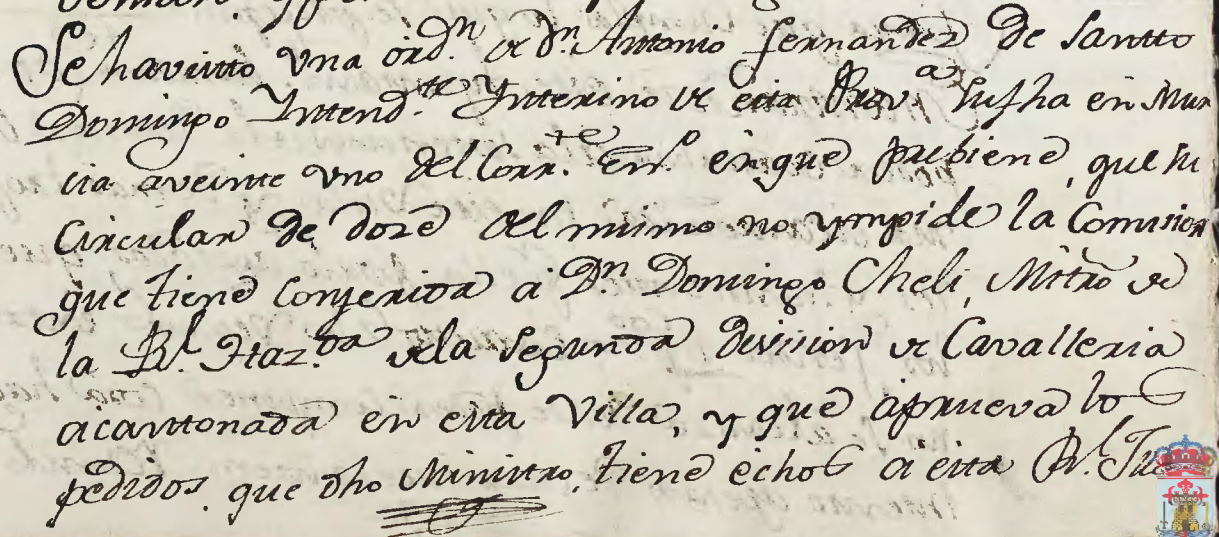 Se ha visto una ôrdn. de Dn. Antonio fernandez de Santto
Domingo Yntendte. Ynterino de esta Prova. su fha en Mur
cia aveinte uno del Corrte. Enº. en que prebiene, que su
Circular de doze del mismo no ympide la Comision
que tiene Conferida a Dn. Domingo Cheli, Mitrõ de
la Rl. Hazda. dela Segunda Division de Cavalleria
acanttonada en esta Villa, y que aprueva los
pedidos que dho Ministro, tiene echos a esta Rl. Ju